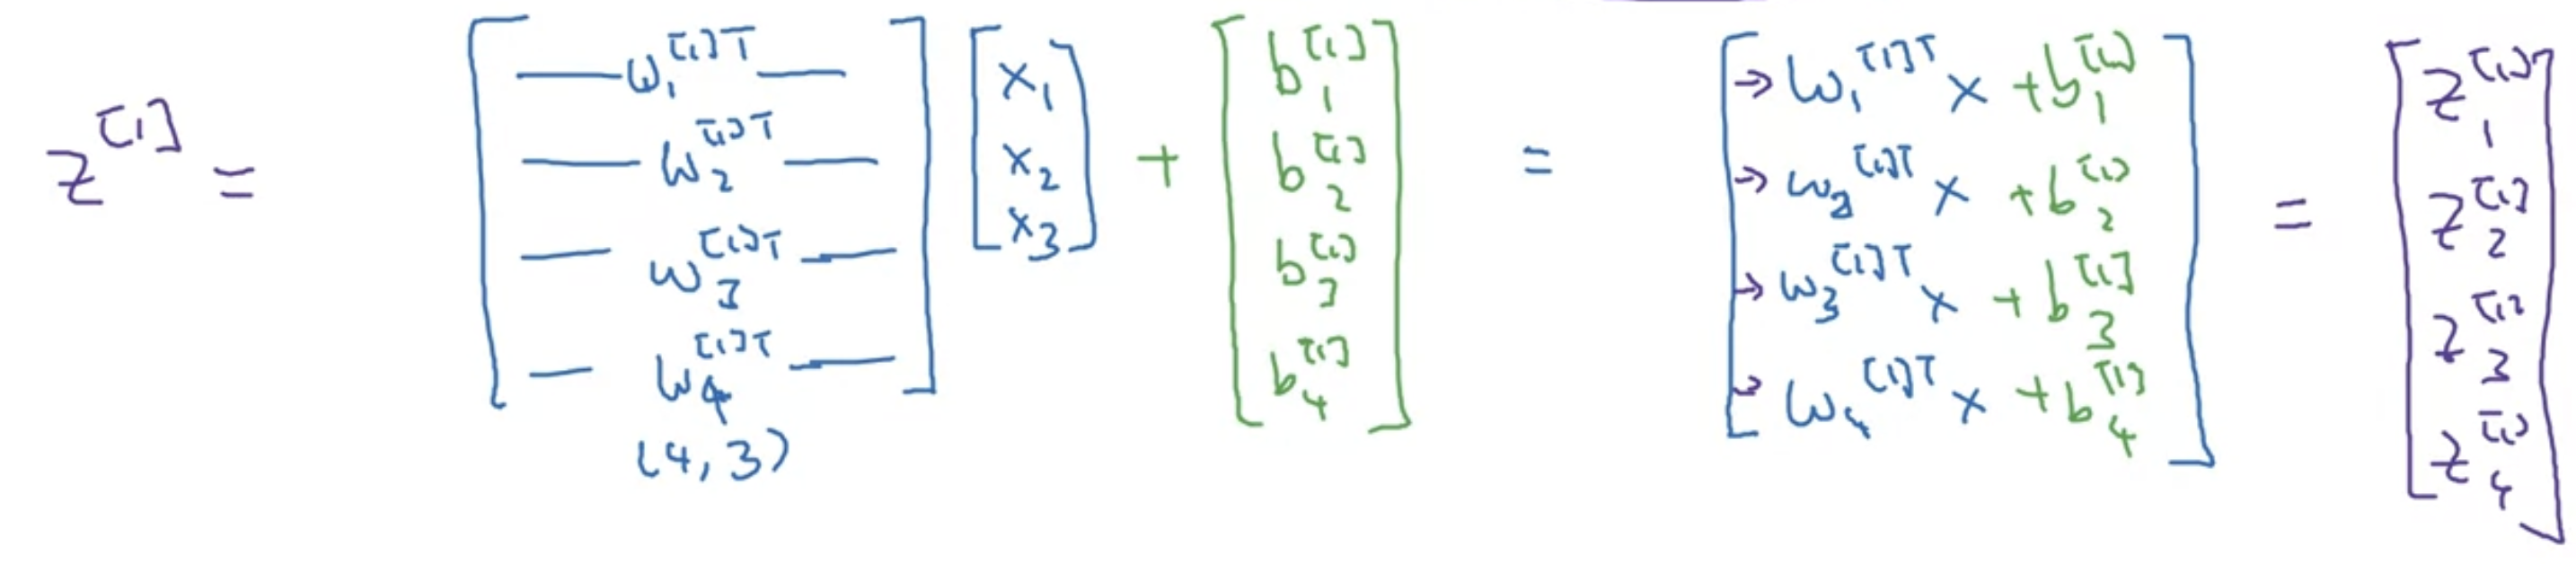 z^[1] = [ — w_1^[1]T — ; — w_2^[1]T — ; — w_3^[1]T — ; — w_4^[1]T — ] [ x_1 ; x_2 ; x_3 ] + [ b_1^[1] ; b_2^[1] ; b_3^[1] ; b_4^[1] ] = [ → w_1^[1]T x + b_1^[1] ; → w_2^[1]T x + b_2^[1] ; → w_3^[1]T x + b_3^[1] ; → w_4^[1]T x + b_4^[1] ] = [ z_1^[1] ; z_2^[1] ; z_3^[1] ; z_4^[1] ]
(4,3)